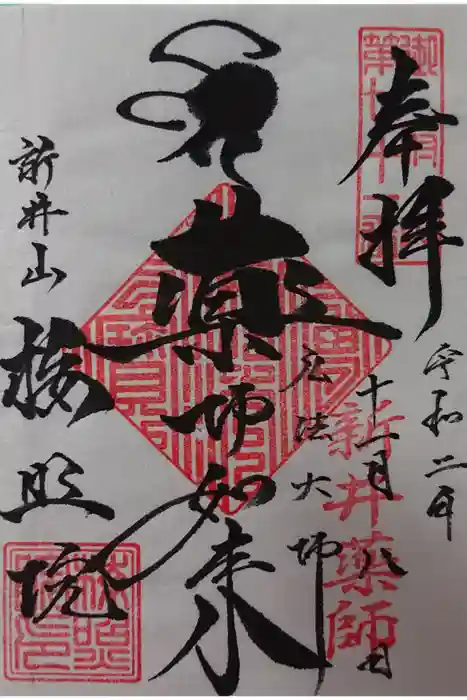 奉拝
令和二年
十一月八日
新井薬師
弘法大師
薬師如来
新井山
梅照院